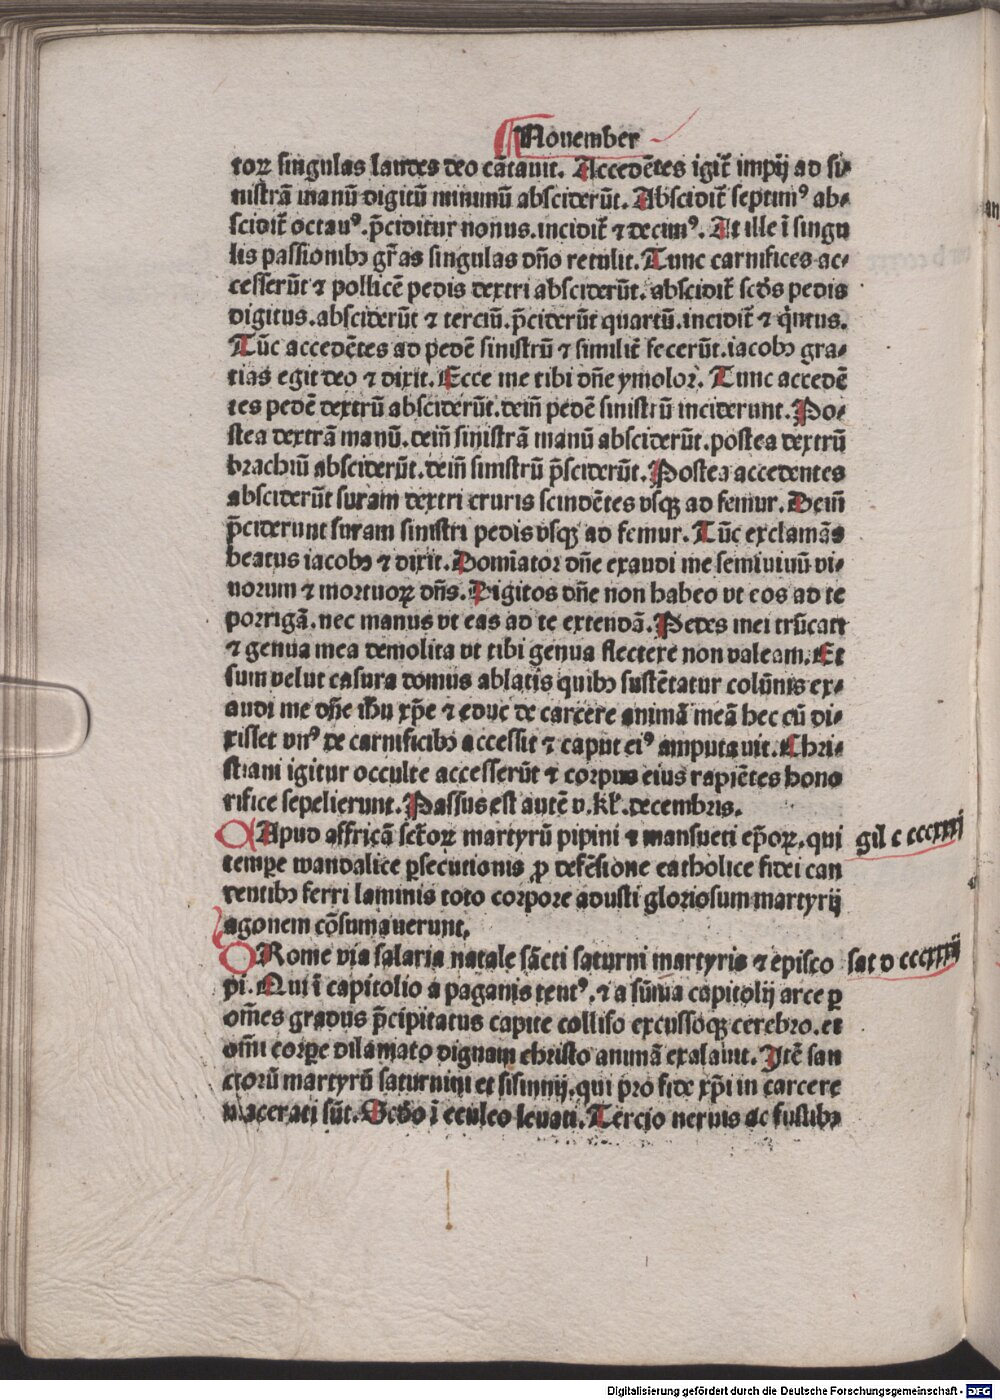 November
toꝝ singulas laudes deo cātauit. Accedētes igit̄ impij ad si⸗
nistrā manū digitū minimū absciderūt. Abscidit̄ septimꝰ ab⸗
scidit̄ octauꝰ. p̄ciditur nonus. incidit̄ ⁊ decimꝰ. At ille ī singu
lis passionibꝫ gr̄as singulas dn̄o retulit. Tunc carnifices ac⸗
cesserūt ⁊ pollicē pedis dextri absciderūt. abscidit̄ scd̄s pedis
digitus. absciderūt ⁊ terciū. p̄ciderūt quartū. incidit̄ ⁊ q̇ntus.
Tūc accedētes ad pedē sinistrū ⁊ similit̄ fecerūt. iacobꝫ gra⸗
tias egit deo ⁊ dixit. Ecce me tibi dn̄e ymolor. Tunc accedē
tes pedē dextrū absciderūt. dein̄ pedē sinistrū inciderunt. Po⸗
stea dextrā manū. dein̄ sinistrā manū absciderūt. postea dextrū
brachiū absciderūt. dein̄ sinistrū p̄sciderūt. Postea accedentes
absciderūt suram dextri cruris scindētes vsqꝫ ad femur. Dein̄
p̄ciderunt suram sinistri pedis vsqꝫ ad femur. Tūc exclamās
beatus iacobꝫ ⁊ dixit. Domīator dn̄e exaudi me semiuiuū vi⸗
uorum ⁊ mortuoꝝ dn̄s. Digitos dn̄e non habeo vt eos ad te
porrigā. nec manus vt eas ad te extendā. Pedes mei trūcati
⁊ genua mea demolita vt tibi genua flectere non valeam. Et
sum velut casura domus ablatis quibꝫ sustētatur colūnis ex⸗
audi me dn̄e ihū xp̄e ⁊ educ de carcere animā meā hec cū di⸗
xisset vnꝰ de carnificibꝫ accessit ⁊ caput eiꝰ amputauit. Chri⸗
stiani igitur occulte accesserūt ⁊ corpus eius rapiētes hono
rifice sepelierunt. Passus est autē v. kl̄. decembris.
Apud affricā sct̄oꝝ martyrū pipini ⁊ mansueti ep̄oꝝ. qui
gil c cccxxxj
tempe wandalice ꝑsecutionis ꝓ defēsione catholice fidei can
dentibꝫ ferri laminis toto corpore adusti gloriosum martyrij
agonem cōsumauerunt.
Rome via salaria natale sācti saturni martyris ⁊ episco
sat d cccxxxij
pi. Qui ī capitolio a paganis tentꝰ. ⁊ a sūma capitolij arce ꝑ
om̄es gradus p̄cipitatus capite colliso excussoqꝫ cerebro. et
om̄i corpe dilamato dignam christo animā exalauit. Itē san
ctorū martyrū saturnini et sisinnij. qui pro fide xp̄i in carcere
macerati sūt. Scd̄o ī eculeo leuati. Tercio neruis ac fustibꝫ
Digitalisierung gefördert durch die Deutsche Forschungsgemeinschaft - DFG